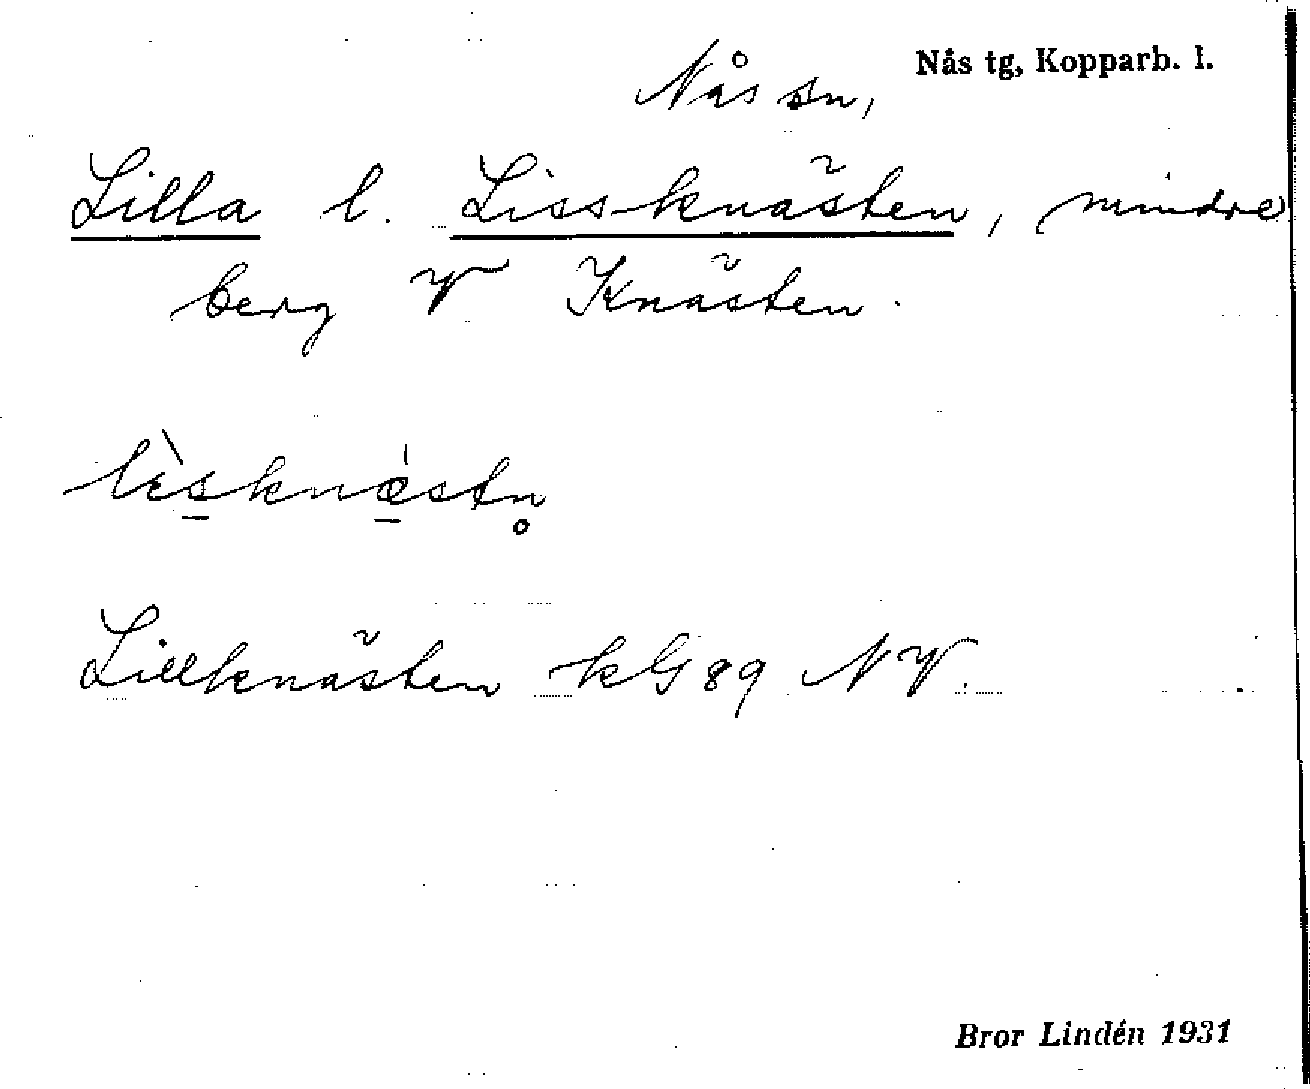 Nås tg, Kopparb. l.
Nås sn,
Lilla l. Liss-knästen, mindre
berg V Knästen.
lìsknæ̀stn̥
Lillknästen kG 89 NV.
Bror Lindén 1931